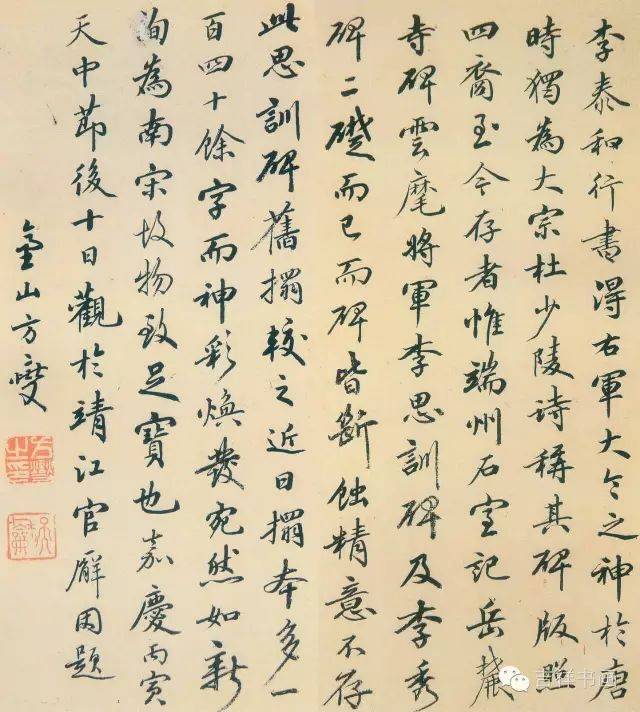 李泰和行書得右軍大令之神於唐
時獨為大宗杜少陵詩稱其碑版照
四裔至今存者惟端州石室記岳麓
寺碑雲麾將軍李思訓碑及李秀
碑二礎而已而碑皆斷蝕精意不存
此思訓碑舊搨較之近日搨本多一
百四十餘字而神彩煥發宛然如新
洵為南宋故物致足寶也嘉慶丙寅
天中節後十日觀於靖江官廨因題
方燮
吉祥书画